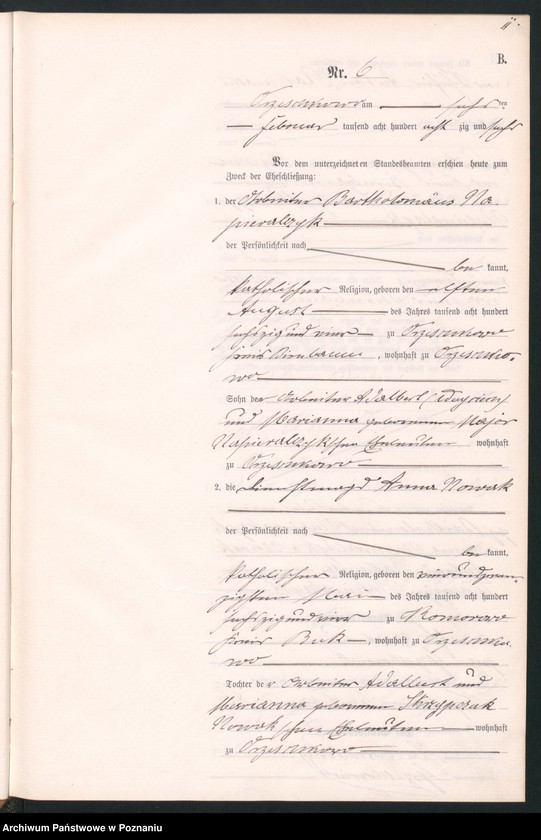 B.
Nr. 6
Orzeszkowo am sechs ten
Februar tausend acht hundert acht zig und sechs
Vor dem unterzeichneten Standesbeamten erschien heute zum
Zweck der Eheschließung:
1. der Arbeiter Bartholomäus Na-
pieralczyk
der Persönlichkeit nach
be kannt,
katholischer Religion, geboren den elften
August des Jahres tausend acht hundert
sechszig und vier zu Orzeszkowo
Kreis Birnbaum, wohnhaft zu Orzeszko-
wo
Sohn des Arbeiter Adalbert
und Marianna geborenen Major
Napieralczyk'schen Eheleuten wohnhaft
zu Orzeszkowo
2. die Dienstmagd Anna Nowak
der Persönlichkeit nach
be kannt,
katholischer Religion, geboren den vierundzwan-
zigsten Mai des Jahres tausend acht hundert
sechszig und vier zu Komorowo
Kreis Buk, wohnhaft zu Orzeszko-
wo
Tochter der Arbeiter Adalbert und
Marianna geborenen Skrzypczak
Nowak'schen Eheleuten wohnhaft
zu Orzeszkowo
Archiwum Państwowe w Poznaniu